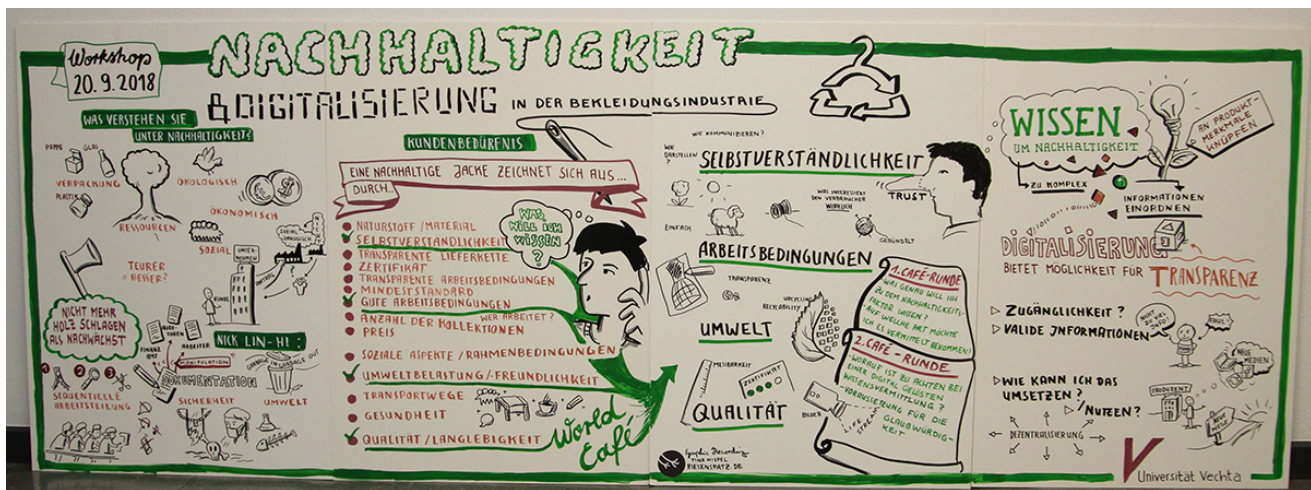 Workshop
20.9.2018
NACHHALTIGKEIT
& DIGITALISIERUNG IN DER BEKLEIDUNGSINDUSTRIE
WAS VERSTEHEN SIE
UNTER NACHHALTIGKEIT?
PAPPE
GLAS
VERPACKUNG
PLASTIK
ÖKOLOGISCH
ÖKONOMISCH
RESSOURCEN
SOZIAL
TEURER
= BESSER?
UNTER-
NEHMEN
KUNDE
NICHT MEHR
HOLZ SCHLAGEN
ALS NACHWÄCHST
NICK LIN-HI:
ARBEITER
FINANZ
AMT
MANIPULATION
GARBAGE IN GARBAGE OUT
DOKUMENTATION
1 2 3
SEQUENTIELLE
ARBEITSTEILUNG
SICHERHEIT
UMWELT
KUNDENBEDÜRFNIS
EINE NACHHALTIGE JACKE ZEICHNET SICH AUS...
DURCH...
NATURSTOFF/MATERIAL
SELBSTVERSTÄNDLICHKEIT
TRANSPARENTE LIEFERKETTE
ZERTIFIKAT
TRANSPARENTE ARBEITSBEDINGUNGEN
MINDESTSTANDARD
GUTE ARBEITSBEDINGUNGEN
WER ARBEITET?
ANZAHL DER KOLLEKTIONEN
PREIS
SOZIALE ASPEKTE/RAHMENBEDINGUNGEN
UMWELTBELASTUNG/-FREUNDLICHKEIT
TRANSPORTWEGE
GESUNDHEIT
QUALITÄT/LANGLEBIGKEIT
WAS
WILL ICH
WISSEN
?
World
Café
WIE KOMMUNIZIEREN?
WIE
DARSTELLEN
?
SELBSTVERSTÄNDLICHKEIT
TRUST
WAS INTERESSIERT
DEN VERBRAUCHER
WIRKLICH
EINFACH
GEBÜNDELT
ARBEITSBEDINGUNGEN
TRANSPARENZ
UPCYCLING
RECYCLABILITY
UMWELT
MESSBARKEIT
ZERTIFIKAT
QUALITÄT
BILDER
LIFE
STREAM
1. CAFÉ-RUNDE
WAS GENAU WILL ICH
ZU DEM NACHHALTIGKEITS-
FAKTOR WISSEN?
AUF WELCHE ART MÖCHTE
ICH ES VERMITTELT BEKOMMEN?
2. CAFÉ-RUNDE
-WORAUF IST ZU ACHTEN BEI
EINER DIGITAL GESTÜTZTEN
WISSENSVERMITTLUNG?
-VORAUSSETZUNG FÜR DIE
GLAUBWÜRDIG-
KEIT
Graphic Recording
TINA NISPEL
RIESENSPATZ.DE
WISSEN
UM NACHHALTIGKEIT
AN PRODUKT-
MERKMALE
KNÜPFEN
ZU KOMPLEX
INFORMATIONEN
EINORDNEN
DIGITALISIERUNG
BIETET MÖGLICHKEIT FÜR TRANSPARENZ
ZUGÄNGLICHKEIT?
VALIDE INFORMATIONEN
NICHT
ZU VIEL
INFO!
NEUE
MEDIEN
WIE KANN ICH DAS
UMSETZEN?
NUTZEN?
PRODUZENT
DEZENTRALISIERUNG
Universität Vechta